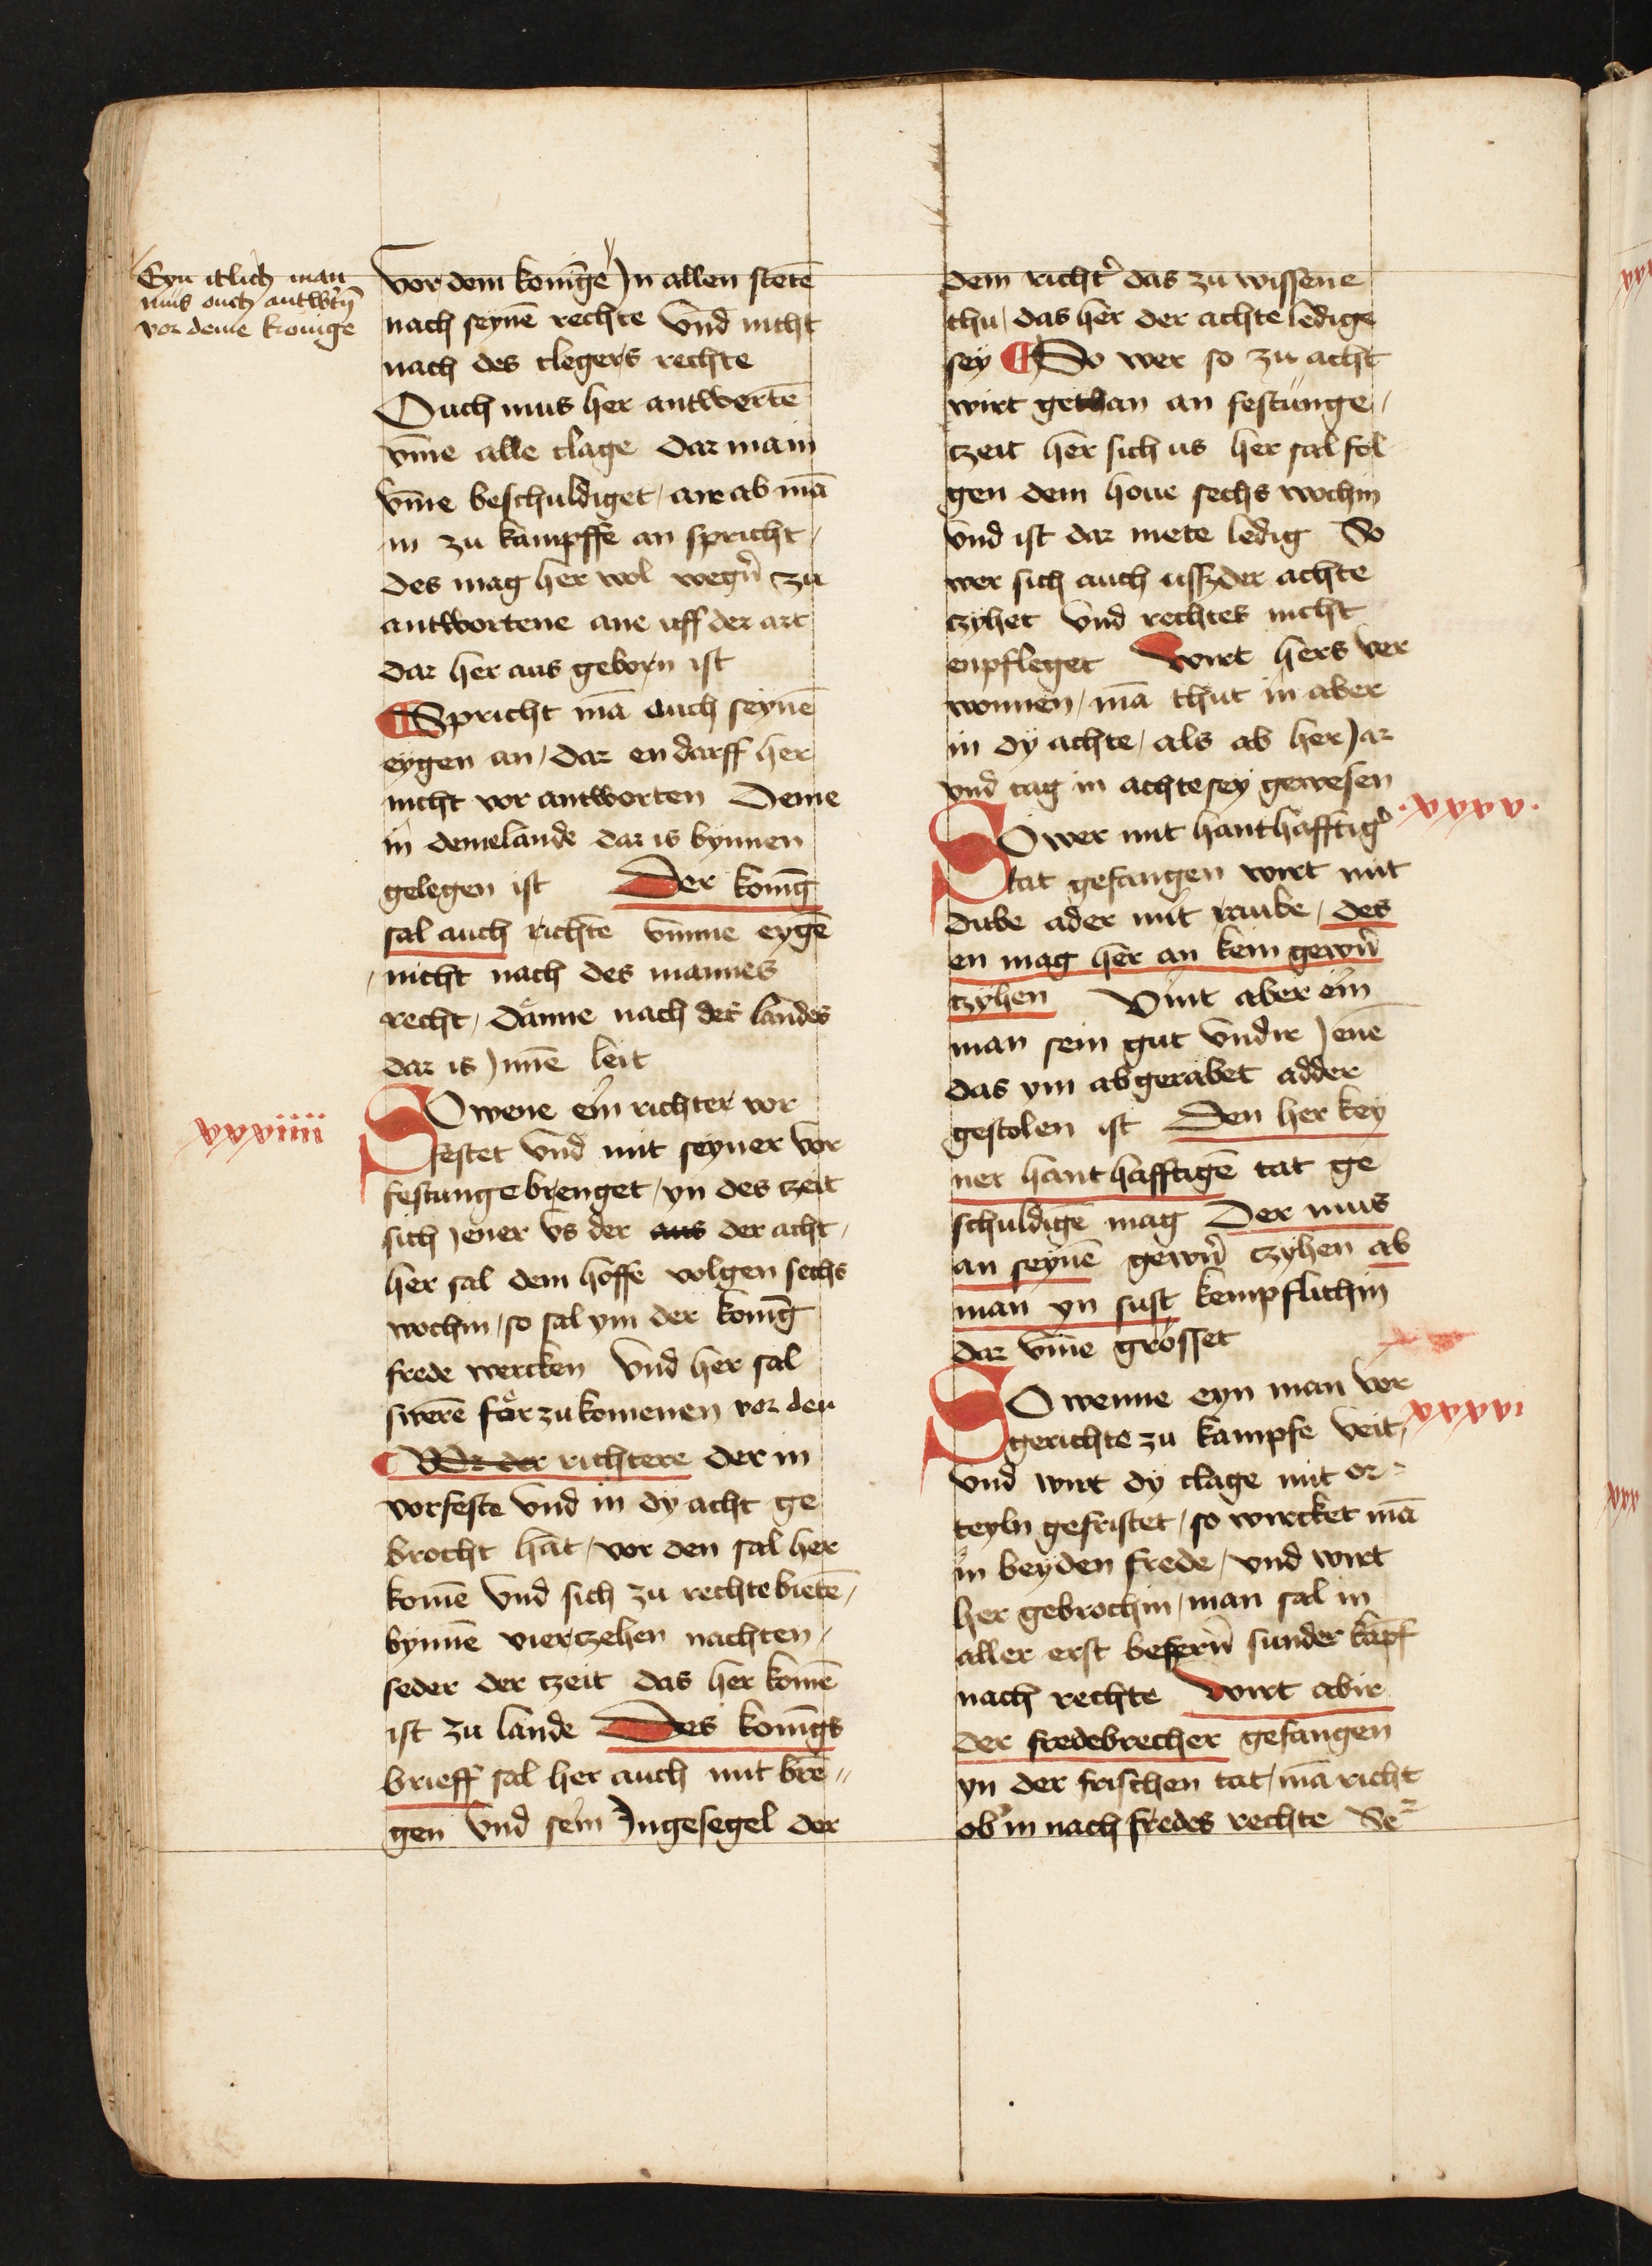 Eyn itlich man
mus ouch antw̉tn̄
vor deme konige
vor dem konīge Jn allen stetē
nach seynē rechte vnd nicht
nach des clegers rechte
Ouch mus her antwertē
vm̄e alle clage dar main
vm̄e beschuldiget / ane ab mā
in zu kampffe an spricht /
des mag her wol wegn̉ zu
antwortene ane uff der art
dar her aus geborn ist
¶ Spricht mā auch seynē
eygen an / dar en darff her
nicht vor antworten Denne
in deme lande dar is bynnen
gelegen ist Der konīg
sal auch richtē vmme eygē
/ nicht nach des mannes
recht / danne nach des landes
dar is Jnnē leit
xxxiiii
SO wene ein richter vor
festet vnd mit seyner vor
festunge brenget / yn des czeit
sich Jener vs der aus der acht /
her sal dem hoffe volgen sechs
wochin / so sal ym der konīg
frede wercken vnd her sal
swerē fär zu komenen vor den
¶ Vor der richtere der in
vorfeste vnd in dy acht ge
brocht hat / vor den sal her
komē vnd sich zu rechte bietē /
bynnē vierczehen nachten /
seder der czeit das her komē
ist zu lande Des konīgs
brieff sal her auch mit bre //
gen vnd sein Jngesegel der
dem richt̉ das zu wissene
thu / das her der achte ledige
sey ¶ So wer so zu acht
wirt gethan an festunge /
czeit her sich us her sal fol
gen dem houe sechs wochin
vnd ist dar mete ledig So
wer sich auch ussz der achte
czyhet vnd rechtes nicht
enpfleget Wirt hers ver
wonnen / mā thut in aber
in dy achte / als ab her Jar
vnd tag in achte sey gewesen
.xxxv.
SO wer mit hanthafftig̉
tat gefangen wirt mit
dube ader mit raube / des
en mag her an kein gewn̉
czyhen Vint aber ein
man sein gut vndir Jenē
das ym abgerabet adder
gestolen ist Den her key
ner hant hafftigē tat ge
schuldigē mag Der mus
an seynē gewn̉ czyhen ab
man yn sust kempflichin
dar vm̄e grosset
xxxvi
SO wenne eyn man vor
gerichte zu kampfe veit /
vnd wirt dy clage mit or=
teyln gefristet / so wircket mā
in beyden frede / vnd wirt
her gebrochin / man sal in
aller erst besern̄ sunder kāpf
nach rechte Wirt abir
der fredebrecher gefangen
yn der frischen tat / mā richt
ob̉ in nach fredes rechte Se=